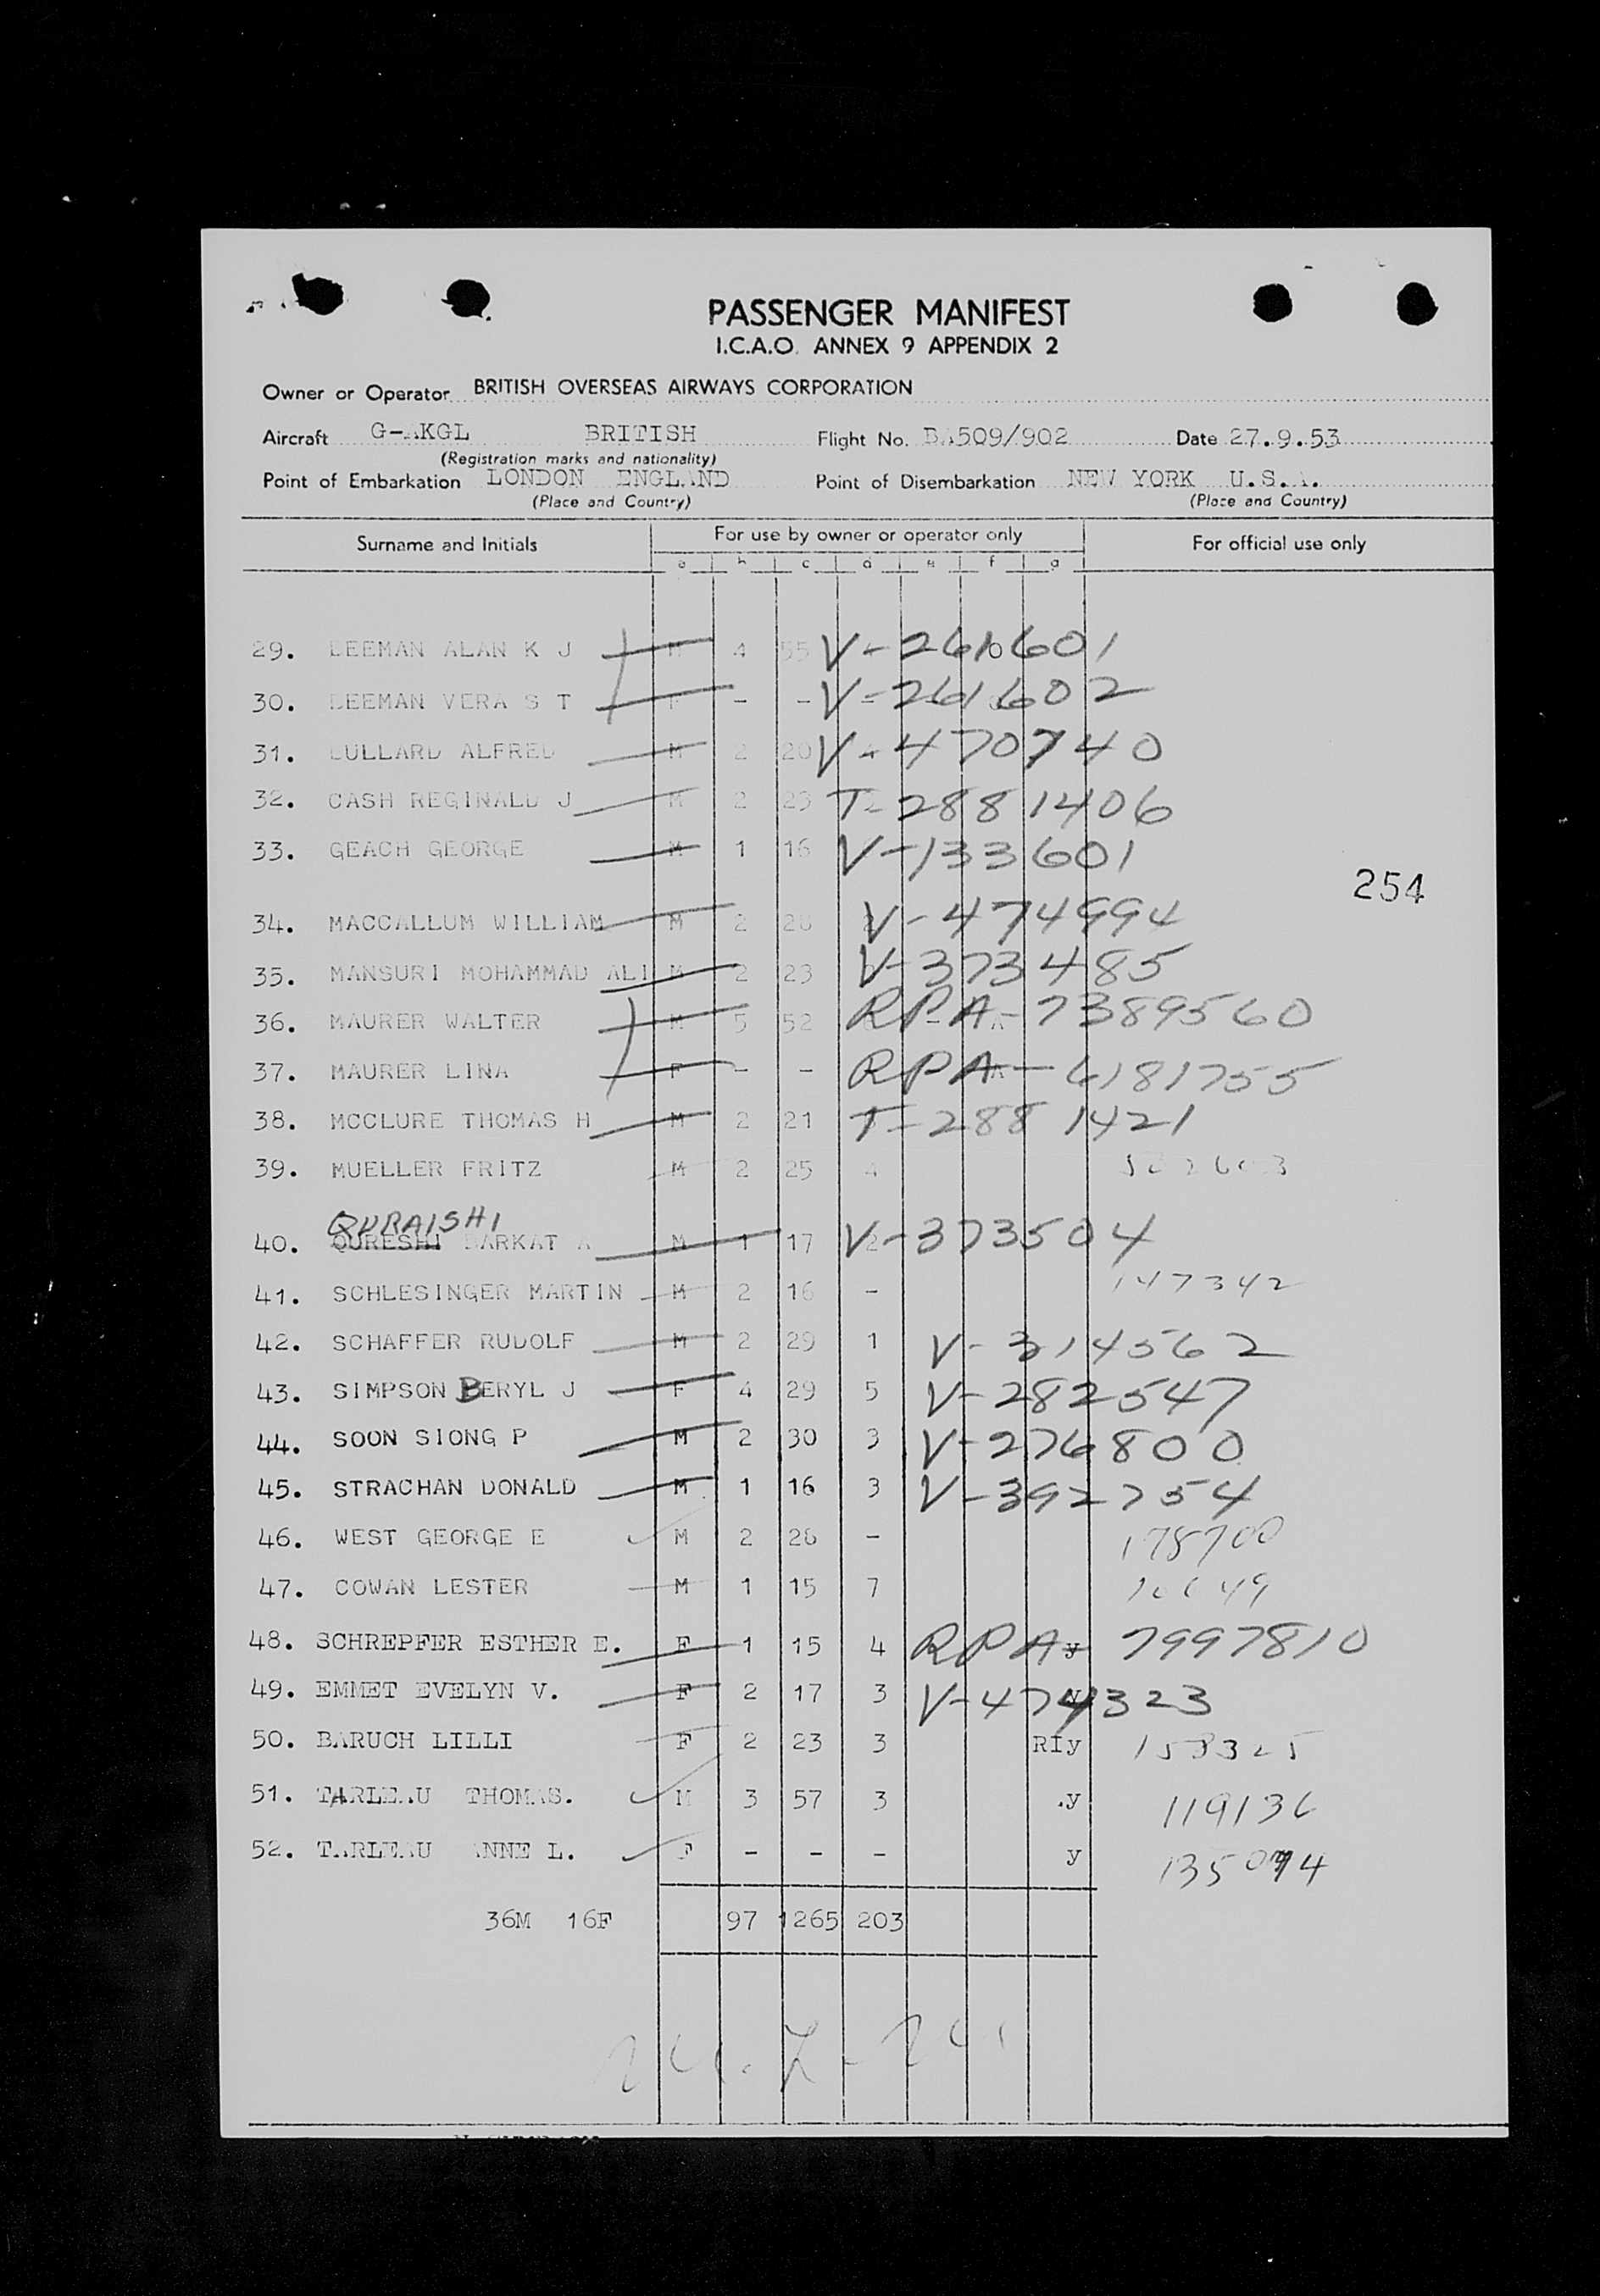 PASSENGER MANIFEST
I.C.A.O. ANNEX 9 APPENDIX 2
Owner or Operator BRITISH OVERSEAS AIRWAYS CORPORATION
Aircraft G-AKGL BRITISH Flight No. BA509/902 Date 27.9.53
(Registration marks and nationality)
Point of Embarkation LONDON ENGLAND Point of Disembarkation NEW YORK U.S.A.
(Place and Country) (Place and Country)
Surname and Initials For use by owner or operator only For official use only
a b c d e f g
29. LEEMAN ALAN K J M 4 55 V-261601
30. LEEMAN VERA S T F - - V-261602
31. LULLARD ALFRED M 2 20 V-470740
32. CASH REGINALD J M 2 23 T-2881406
33. GEACH GEORGE M 1 16 V-133601
254
34. MACCALLUM WILLIAM M 2 V-474994
35. MANSURI MOHAMMAD ALI M 2 23 V-373485
36. MAURER WALTER M 5 52 RPA-7389560
37. MAURER LINA F - - RPA-6181755
38. MCCLURE THOMAS H M 2 21 T-2881421
39. MUELLER FRITZ M 2 25 4
QURAISHI
40. QURESHI BARKAT A M 1 17 2 V-373504
41. SCHLESINGER MARTIN M 2 16 - 147342
42. SCHAFFER RUDOLF M 2 29 1 V-314562
43. SIMPSON BERYL J F 4 29 5 V-282547
44. SOON SIONG P M 2 30 3 V-276800
45. STRACHAN DONALD M 1 16 3 V-392754
46. WEST GEORGE E M 2 28 - 178700
47. COWAN LESTER M 1 15 7
48. SCHREPFER ESTHER E. F 1 15 4 RPA-y 7997810
49. EMMET EVELYN V. F 2 17 3 V-474323
50. BARUCH LILLI F 2 23 3 RIy 153325
51. TARLEAU THOMAS. M 3 57 3 .y 119136
52. TARLEAU ANNE L. F - - - y
36M 16F 97 1265 203